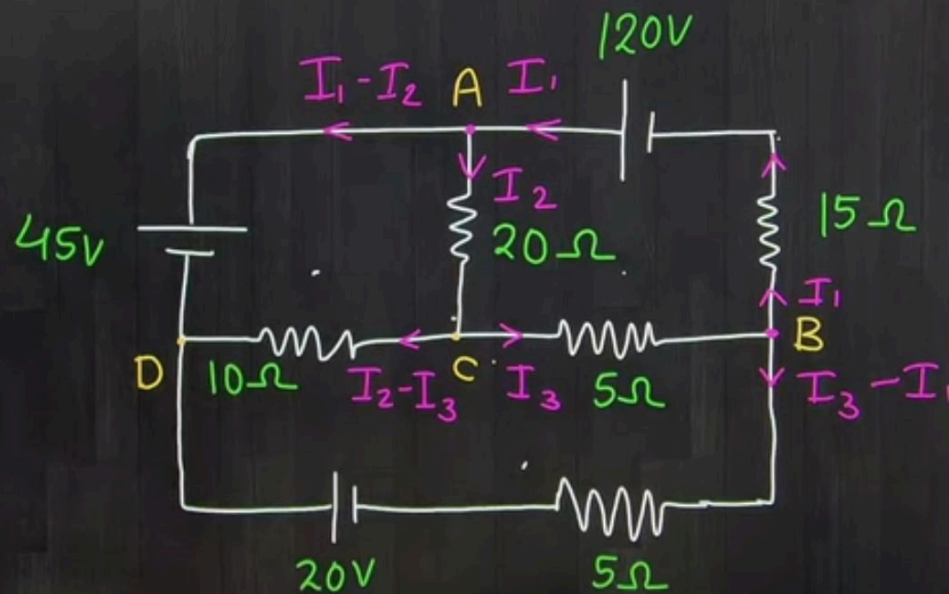 120V
I₁-I₂ A I₁
I₂
45V
20Ω
15Ω
I₁
B
D 10Ω I₂-I₃ C I₃ 5Ω I₃-I
20V
5Ω